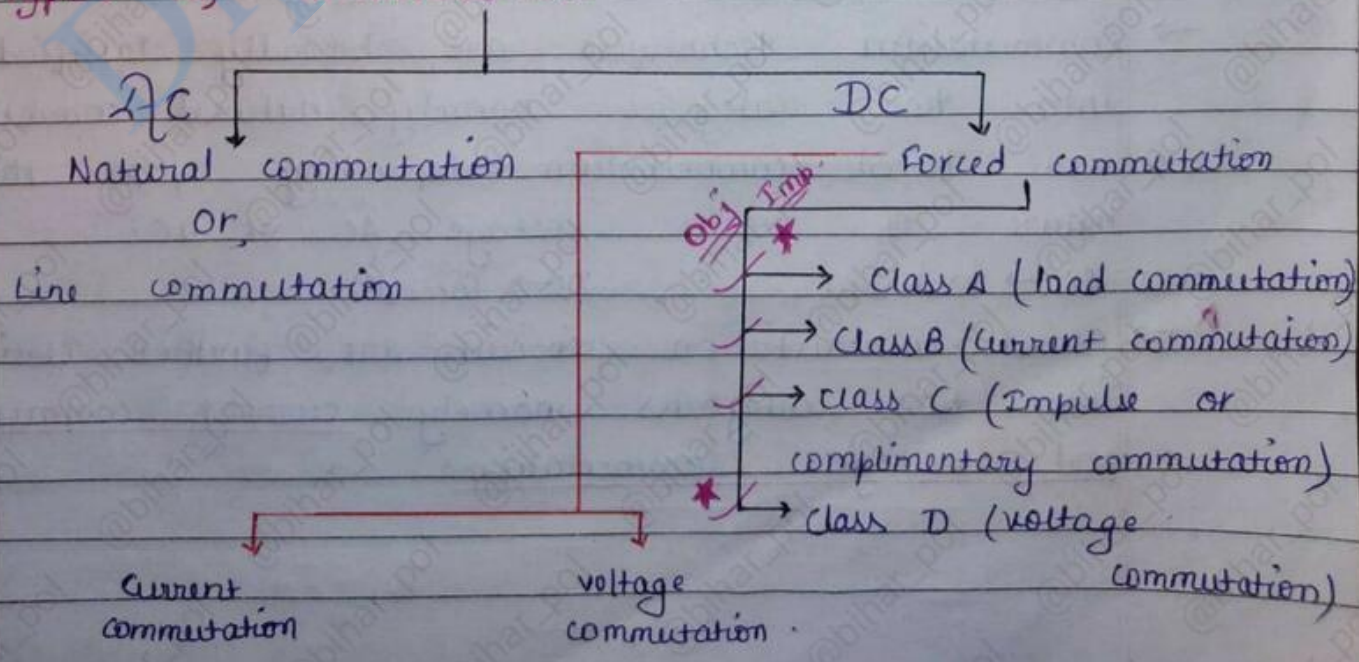 AC
DC
Natural commutation
Forced commutation
Or,
Obj Imp.
Line commutation
Class A (load commutation)
Class B (Current commutation)
Class C (Impulse or
complimentary commutation)
Class D (voltage
commutation)
Current
commutation
voltage
commutation.
@bihar_pol